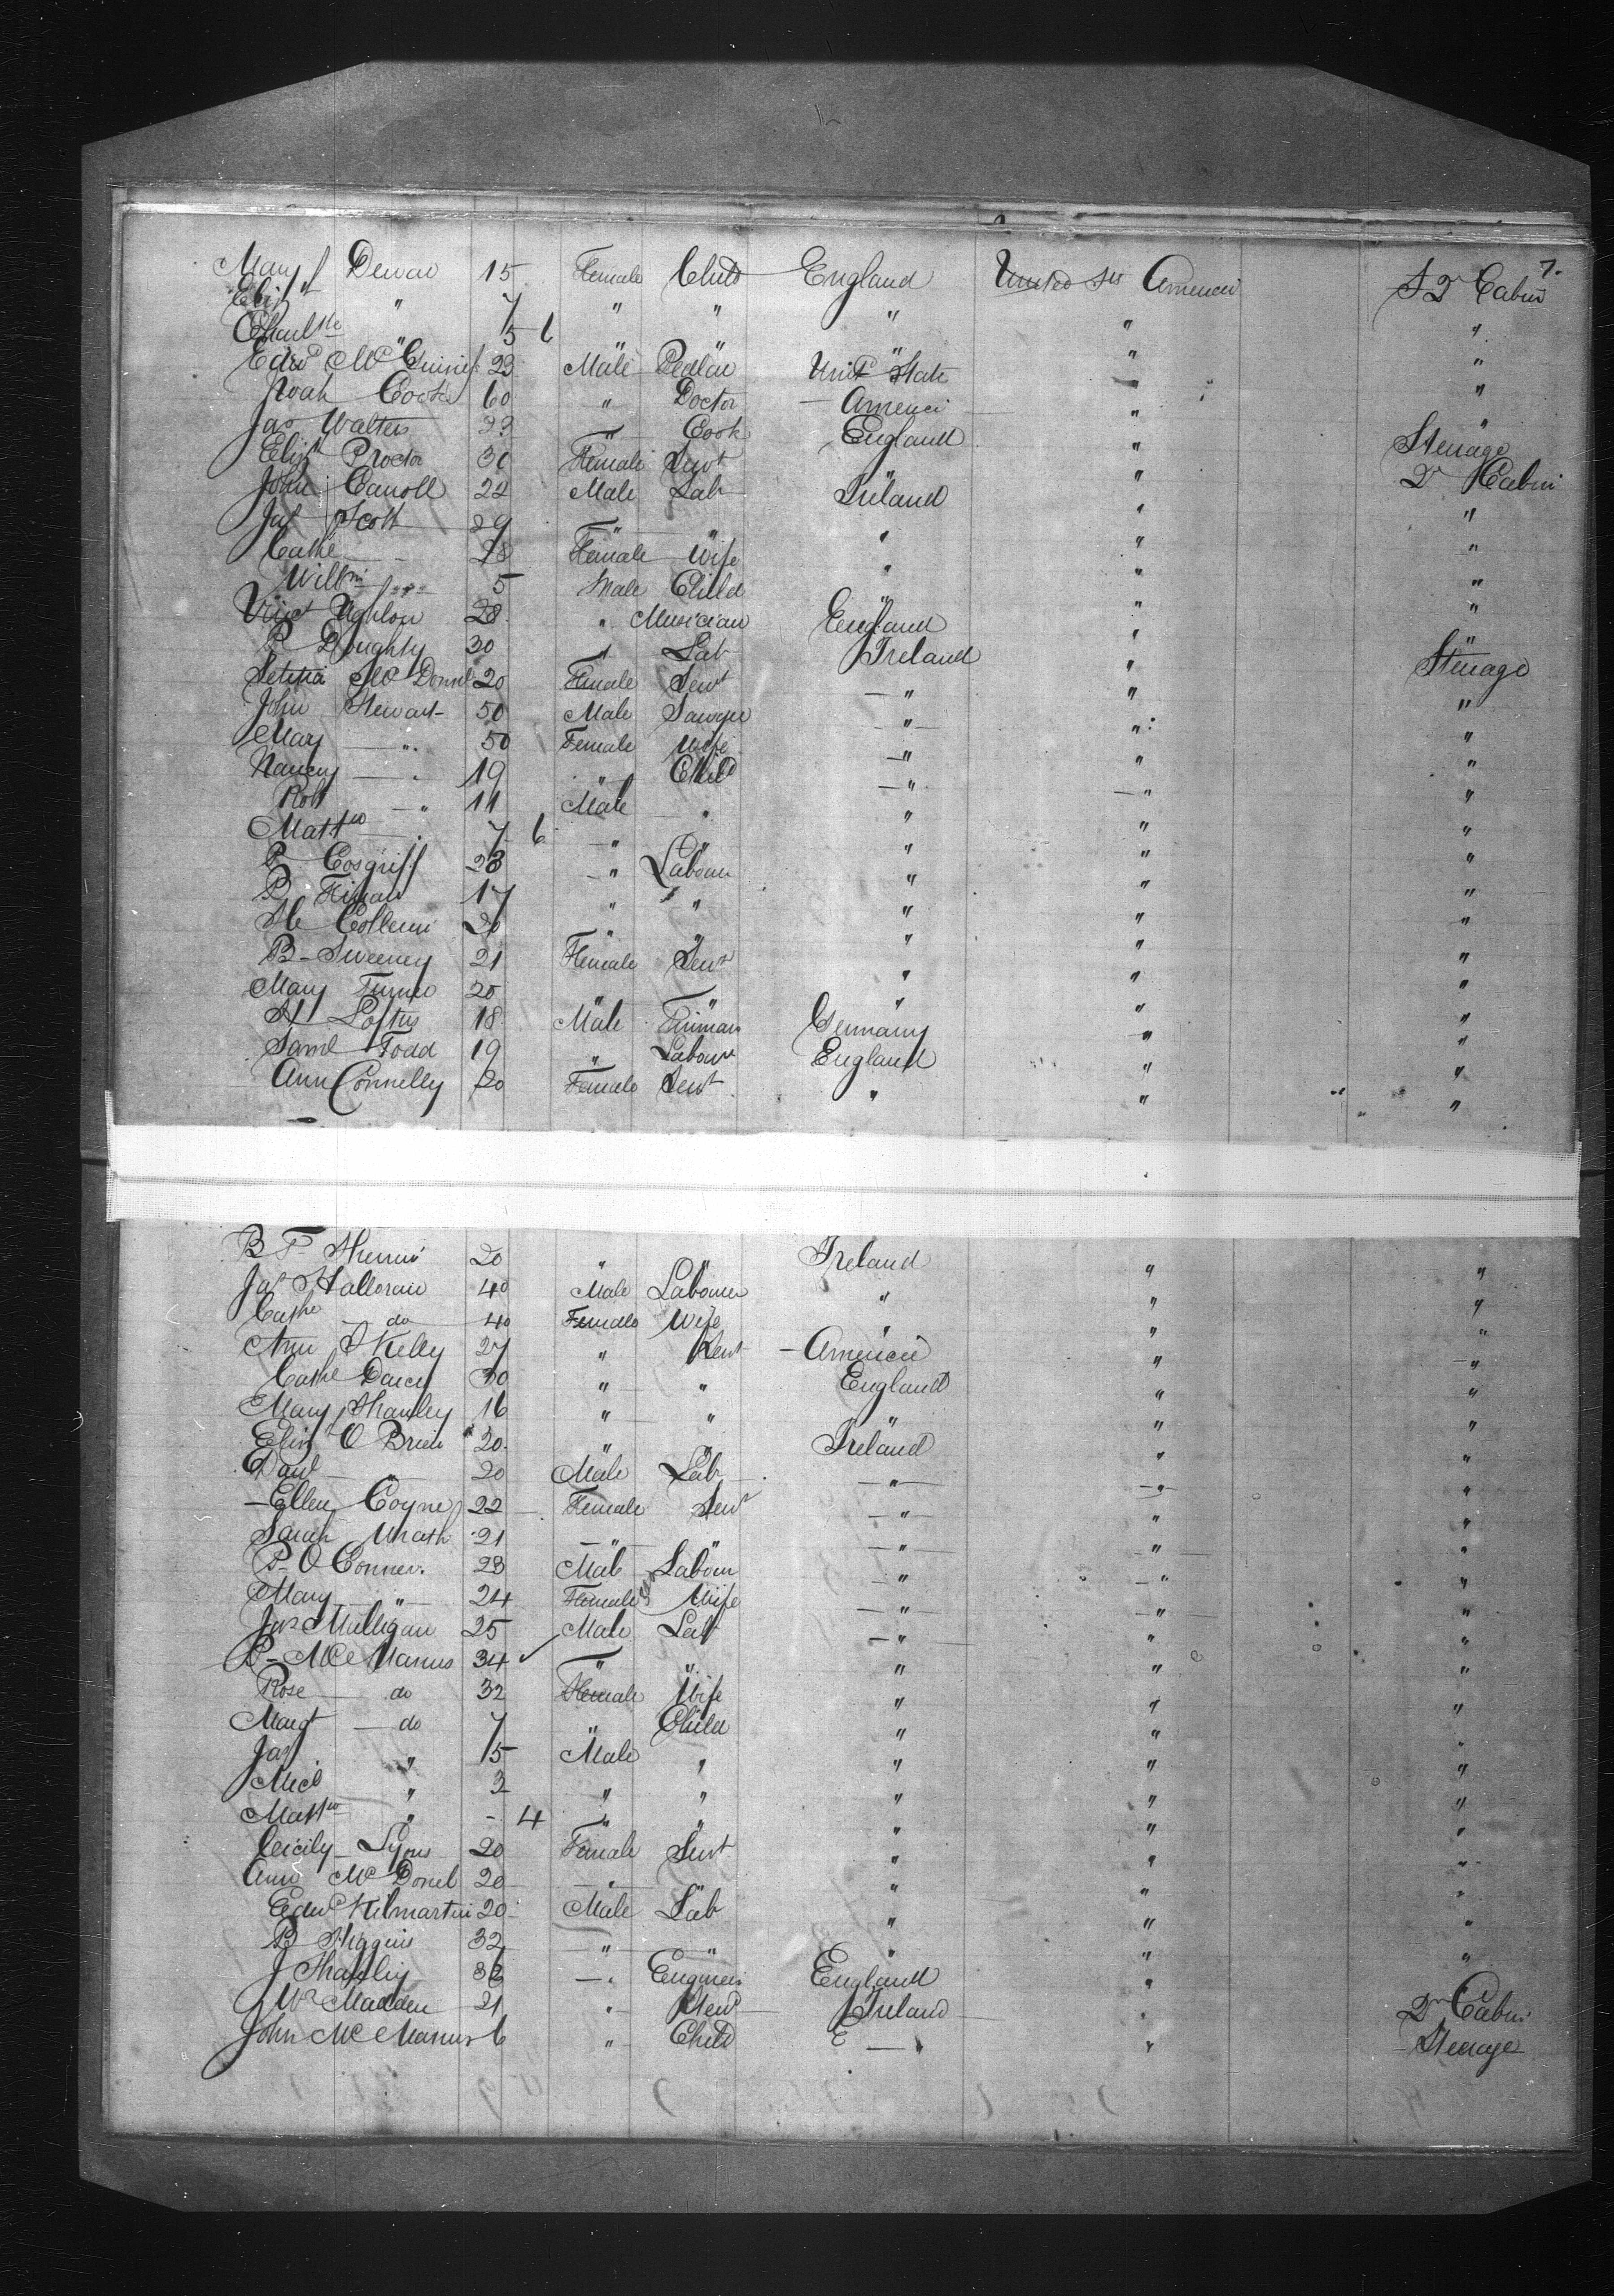 7.
Mary Dewar 15 Female Child England United Sts America S 2r Cabin
Elizth " 7 " " " " "
Charltte " 5 6 " " " " "
Edwd McGuinis 23 Male Pedlar Unitd State " "
Noah Cook 60 " Doctor America " "
Jas Walters 23 " Cook England " Steerage
Elizth Proctor 30 Female Servt " " 2r Cabin
John Carroll 22 Male Lab Ireland " "
Jas Scott 29 " " " " "
Cathe 28 Female Wife " " "
Willm 5 Male Child " " "
28 " Musician England " "
P Doughty 30 " Lab Ireland " Steerage
Letitia McDonnel 20 Female Servt " " "
John Stewart 50 Male Sawyer " " "
Mary " 50 Female Wife " " "
Nancy " 19 " Child " " "
Robt " 11 Male " " " "
Mattw " 7 6 " " " " "
P Cosgriff 23 " Labour " " "
P 17 " " " " "
20 " " " " "
B Sweeney 21 Female Servt " " "
Mary Turner 20 " " " " "
Loftus 18 Male Germany " "
Saml Todd 19 " Labour England " "
Ann Connelly 20 Female Servt " " "
B T 20 " " Ireland " "
Jas Halloran 40 Male Labourer " " "
Cathe do 40 Female Wife " " "
Ann Kelly 27 " Servt America " "
Cathe Darcy 30 " " England " "
Mary Shanley 16 " " " " "
Eliz O Brien 20 " " Ireland " "
Danl " 20 Male Lab " " "
Ellen Coyne 22 Female Servt " " "
Sarah 21 " " " " "
P O Conner 23 Male Labour " " "
Mary " 24 Female Wife " " "
Jas Mulligan 25 Male Lab " " "
P McManus 34 " " " " "
Rose do 32 Female Wife " " "
Margt do 7 " Child " " "
Jas " 5 Male " " " "
Micl " 3 " " " " "
Mattw " - 4 " " " " "
Cecily Lyons 20 Female Servt " " "
Ann McDonel 20 " " " " "
Edwd Kilmartin 20 Male Lab " " "
B Higgins 32 " " " " "
J 32 " Engineer England " "
Wm Madden 21 " Ireland " 2r Cabin
John McManus 6 " Child E " " Steerage